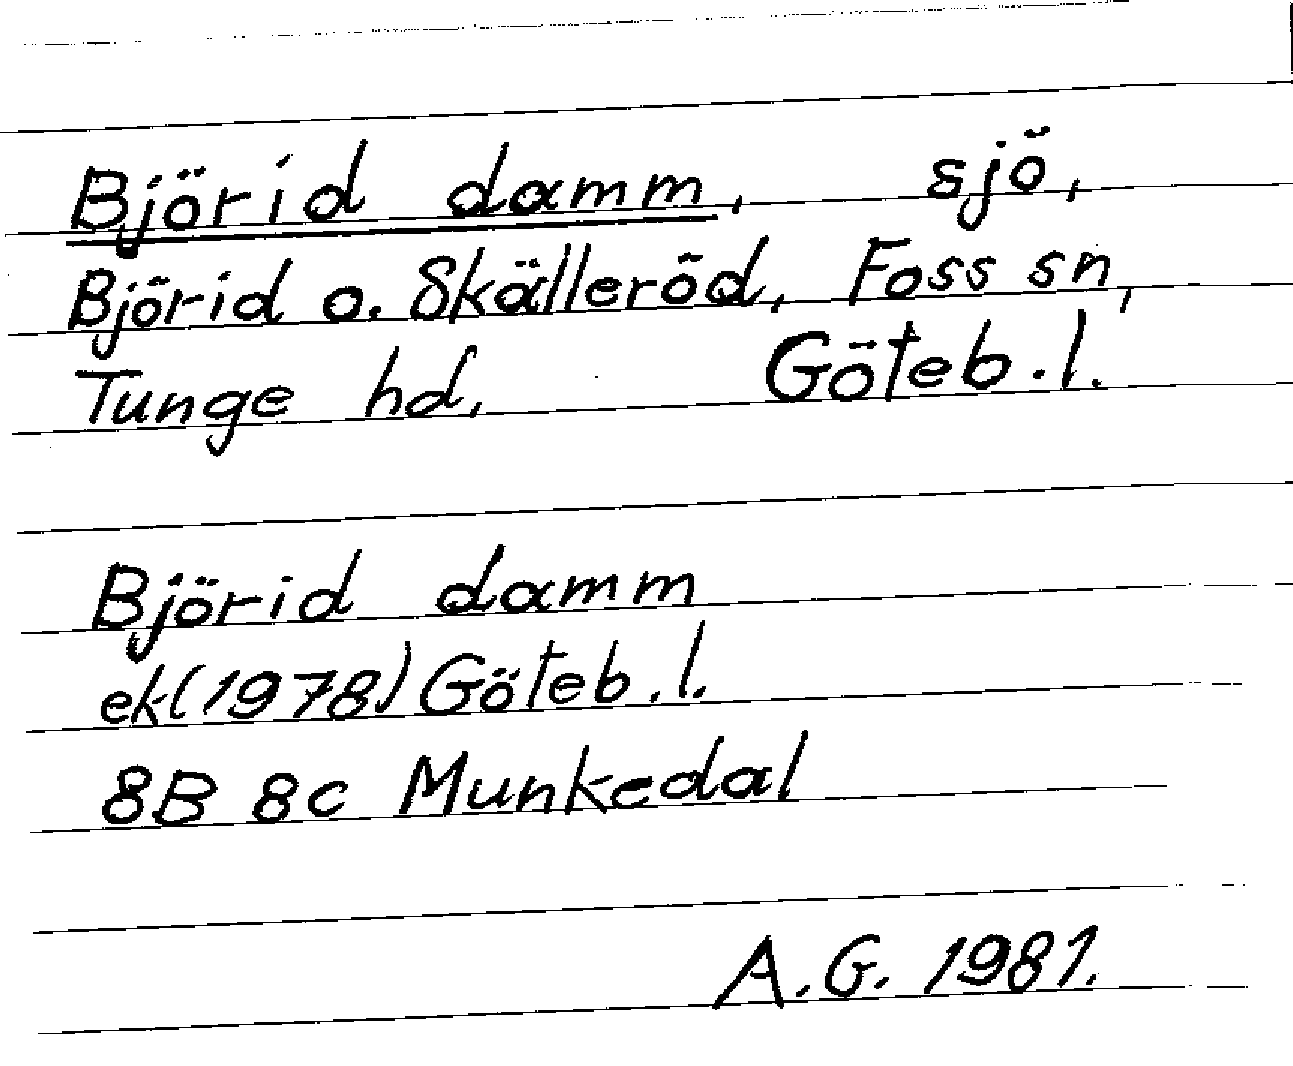 Björid damm, sjö,
Björid o. Skälleröd, Foss sn,
Tunge hd, Göteb.l.
Björid damm
ek(1978) Göteb.l.
8B 8c Munkedal
A.G. 1981.